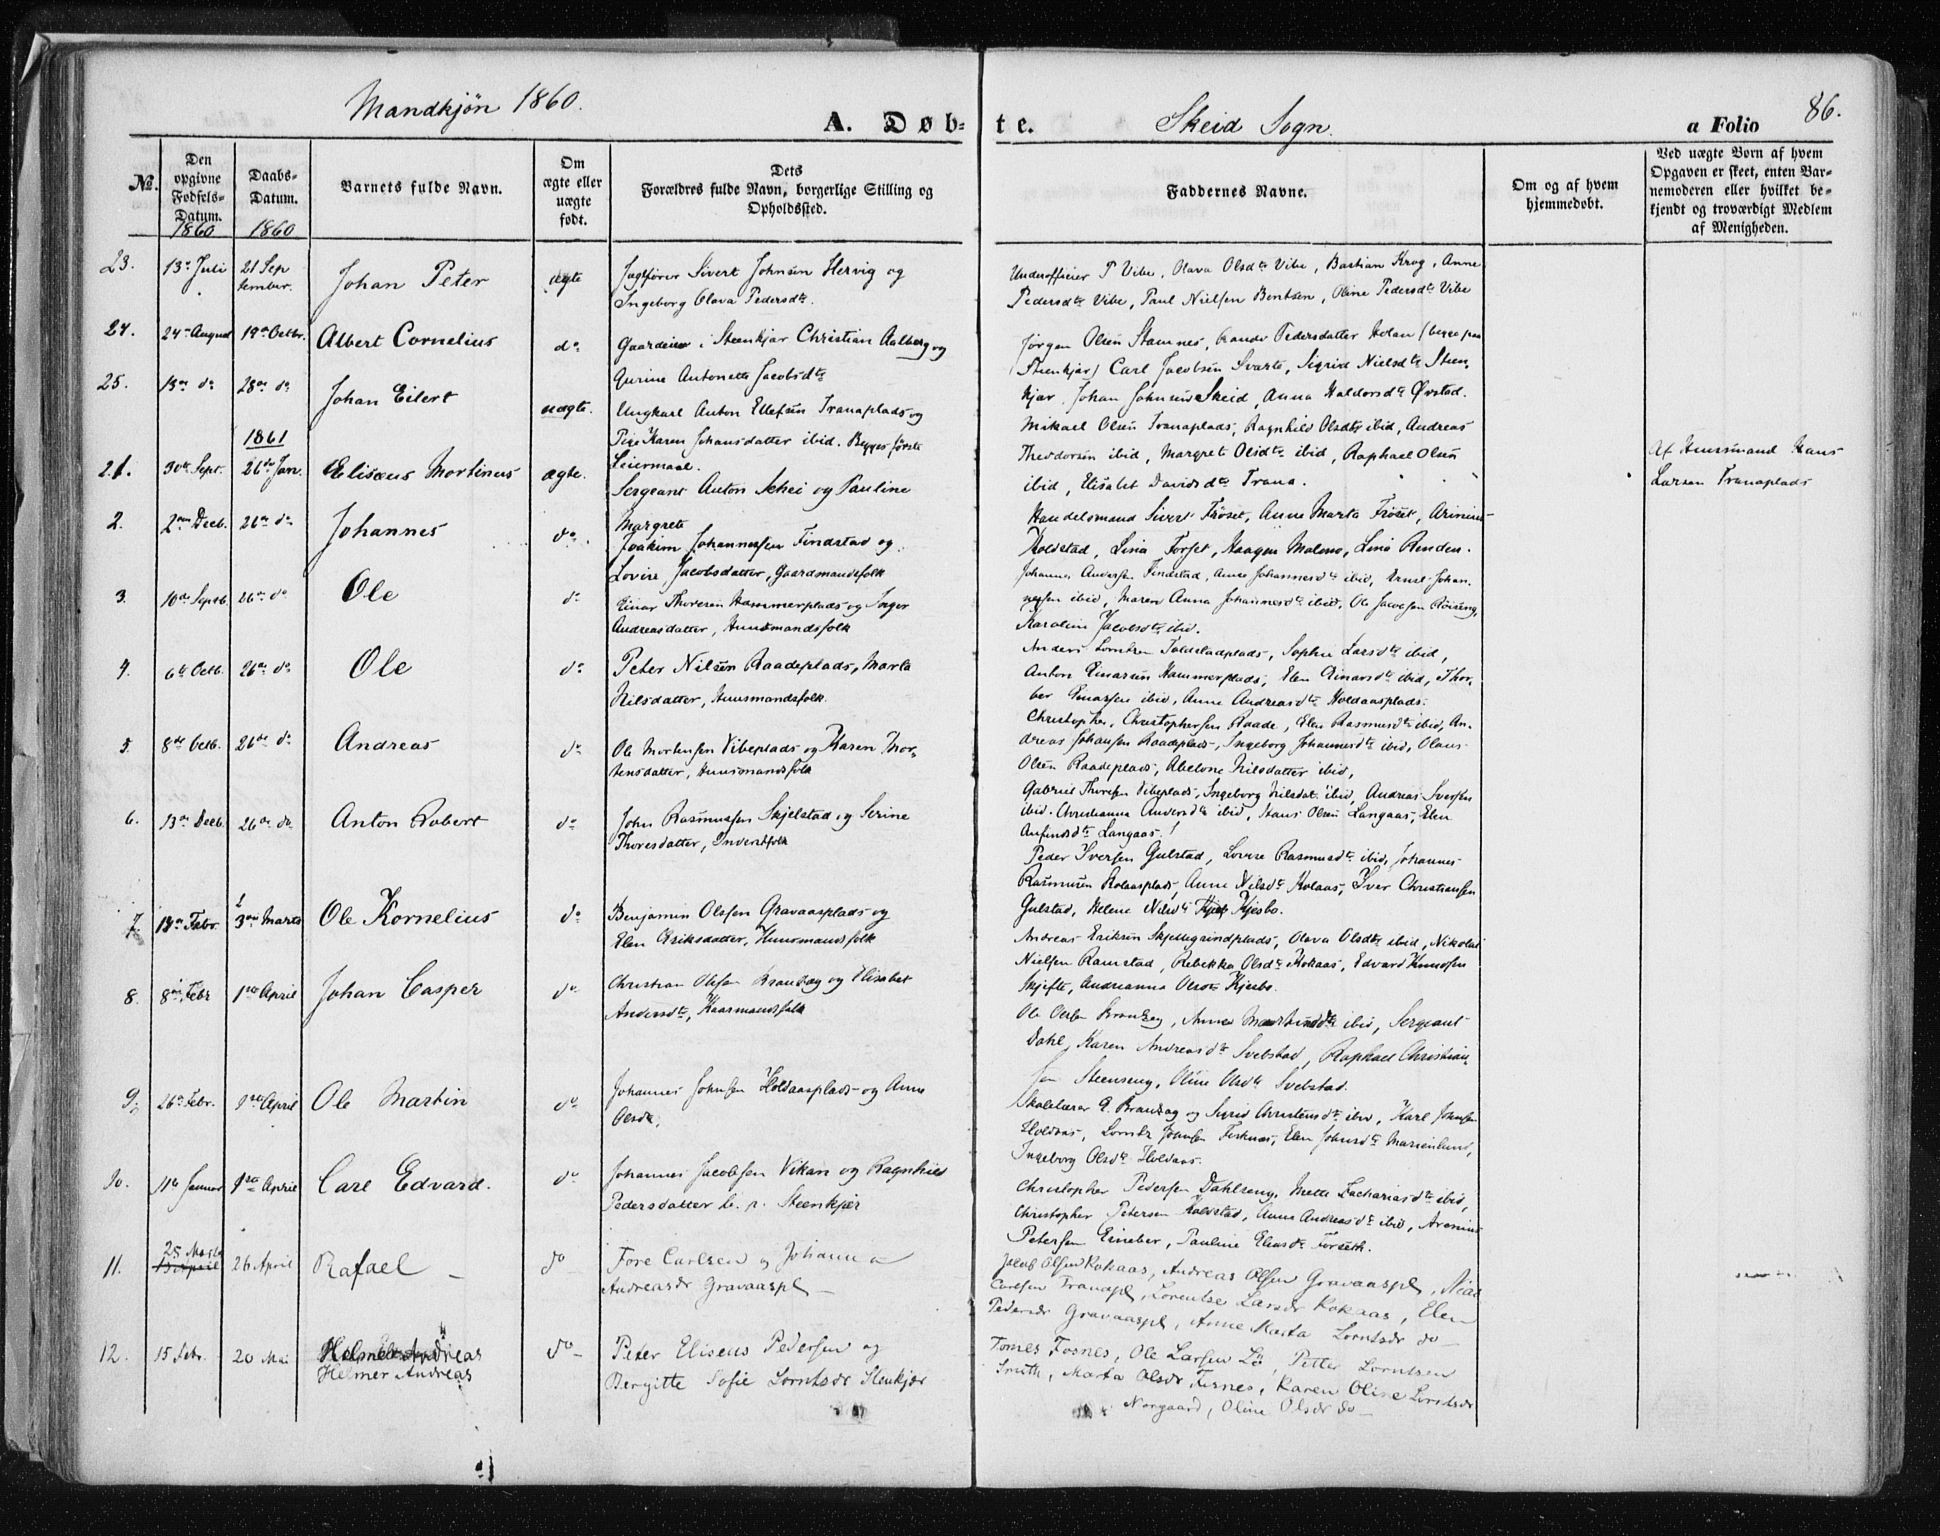 Mandkjøn 1860.
A. Døb-
te.
Skeid Sogn.
a Folio
86.
No.
Den opgivne Fødsels-Datum.
1860
Daabs-Datum.
1860
Barnets fulde Navn.
Om ægte eller uægte født.
Dets
Forældres fulde Navn, borgerlige Stilling og
Opholdssted.
Faddernes Navne.
Om og af hvem
hjemmedøbt.
Ved uægte Børn af hvem
Opgaven er skeet, enten Bar-
nemoderen eller hvilket be-
kjendt og troværdigt Medlem
af Menigheden.
23. 13de Juli 21 September. Johan Peter ægte
Jagtfører Sivert Johnsen Hervig og
Ingeborg Olava Pedersdtr.
Underofficier P Vibe, Olava Olsdtr Vibe, Bastian Krog, Anne
Pedersdtr Vibe, Paul Nielsen Bentsen, Oline Pedersdtr Vibe
24. 24de August 19de Octbr. Albert Cornelius do
Gaardeier i Steenkjær Christian Aalberg og
Gurine Antonette Jacobsdtr
Jørgen Olsen Stamnes, Pedersdatter Holan (begge paa
Steenkjær) Carl Jacobsen Svarte, Sigrid Nielsdtr Steen-
kjær, Johan Johnsen Skeid, Anna Haldorsdtr Øvstad.
25. 13de do 28de do Johan Eilert uægte.
Ungkarl Anton Ellefsen Tranaplads og
Pige Karen Johansdatter ibid. Begges første
Leiermaal.
Mikael Olsen Tranaplads, Ragnhild Olsdtr ibid, Andreas
Theodorsen ibid, Margret Olsdtr ibid, Raphael Olsen
ibid, Elisabet Davidsdtr Trana.
Af Huusmand Hans
Larsen Tranaplads
1861
1. 30te Sept. 26de Jan. Elisæus Mortinus ægte.
Sergeant Anton Schei og Pauline
Margrete
Handelsmand Sivert Frøset, Anne Marta Frøset, Arinius
Holdstad, Lina Forset, Haagen Malmo, Lina Benden.
2. 2den Decb. 26de do Johannes do
Joakim Johannessen Findstad og
Lovise Jacobsdatter, Gaardmandsfolk
Johannes Andersen Findstad, Anne Johannesdtr ibid, Ernst Johan-
nesen ibid, Maren Anna Johannesdtr ibid, Ole Jacobsen Røiseng,
Karoline Jacobsdtr ibid.
3. 10de Septb. 26de do Ole do
Einar Thoresen Hammerplads og Inger
Andreasdatter, Huusmandsfolk
Anders Lorntsen Foldstadplads, Sophie Larsdtr ibid,
Anton Einarsen Hammerplads, Elen Einarsdtr ibid, Thor-
ber Einarsen ibid, Anne Andreasdtr Holdaasplads.
4. 6te Octb. 26de do Ole do
Peter Nilsen Raadeplads, Marta
Nilsdatter, Huusmandsfolk.
Christopher Christophersen Raade, Elen Rasmusdtr ibid, An-
dreas Johansen Raadeplads, Ingeborg Johannesdtr ibid, Olaus
Olsen Raadeplads, Abelone Nilsdatter ibid,
5. 8de Octb. 26de do Andreas do
Ole Mortensen Vibeplads og Karen Mor-
tensdatter, Huusmandsfolk
Gabriel Thoresen Vibeplads, Ingeborg Nilsdatr ibid, Andreas Iversen
ibid. Christianna Andersdtr ibid, Hans Olsen Langaas, Elen
Anfindsdtr Langaas.
6. 13de Decb. 26de do Anton Robert do
John Rasmussen Skjelstad og Serine
Thoresdatter, Inderstfolk
Peder Iversen Gulstad, Lovise Rasmusdtr ibid, Johannes
Rasmusen Kolaasplads, Anne Nilsdtr Kolaas, Iver Christiansen
Gulstad, Helene Nilsdtr Kjesbo.
7. 13de Febr. 3die Marts Ole Kornelius do
Benjamin Olssen Gravaasplads og
Elen Eriksdatter, Huusmandsfolk
Andreas Eriksen Skjellegrindplads, Olava Olsdtr ibid, Nikolai
Nielsen Ramstad, Rebekka Olsdtr Kokaas, Edvard Knudsen
Skjefte, Andrianna Olsdtr Kjesbo.
8. 8de Febr 1ste April Johan Casper do
Christian Olsen Brandsæg og Elisabet
Andersdtr, Gaarmandsfolk
Ole Olsen Brandsæg, Anne Martinsdtr ibid, Sergeant
Dahl, Karen Andreasdtr Svebstad, Raphael Christian-
sen Steenseng, Oline Olsdtr Svebstad.
9. 26de Febr. 1ste April Ole Martin do
Johannes Johnsen Holdaasplads og Anne
Olsdtr.
Skolelærer G. Brandsæg og Sigrid Christensdtr ibid, Karl Johnsen
Holdaas, Lornts Johnsen Fisknes, Elen Johnsdtr Marienlund,
Ingeborg Olsdtr Holdaas.
10. 11te Januar 1ste April Carl Edvard. do
Johannes Jacobsen Vikan og Ragnhild
Pedersdatter b. p. Steenkjær
Christopher Pedersen Dahlseng, Mette Zachariasdtr ibid,
Christopher Petersen Holdstad, Anne Andreasdtr ibid, Arenius
Petersen Eineber, Pauline Eliasdtr Forseth.
11. 25 Marts 13 April 26 April Rafael do
Tore Carlsen og Johanna
Andreasdr Gravaaspl
Jacob Olsen Kokaas, Andreas Olsen Gravaaspl,
Carlsen Tranapl, Lorentse Larsdr Kokaas, Elen
Pedersdr Gravaaspl, Anne Marta Lorntsdr do
12. 15 Febr. 20 Mai Helmer Andreas
Helmer Andreas do
Peter Eliseus Pedersen og
Bergitte Sofie Lorntsdr Stenkjær
Tomes Fosnes, Ole Larsen Lø, Petter Lorntsen
Smith, Marta Olsdr Fosnes, Karen Oline Lorntsdr
Norgaard, Oline Olsdr do